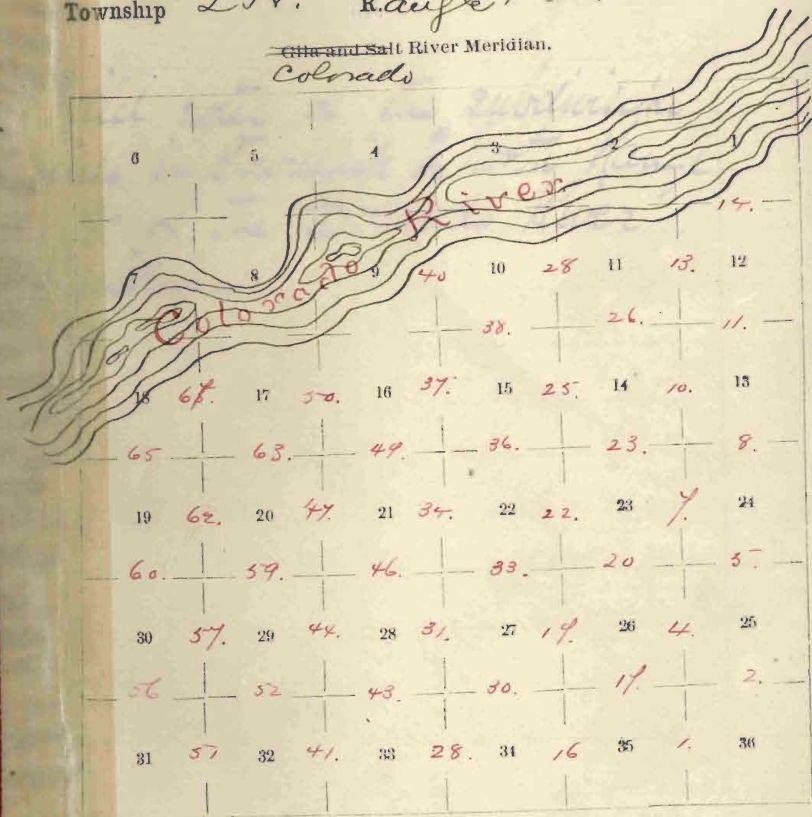 Township 2 N. Range
Gila and Salt River Meridian.
Colorado
6 5 4 3 2 1
14.
Colorado River
7 8 9 40 10 28 11 13. 12
38. 26. 11.
18 67. 17 50. 16 37. 15 25. 14 10. 13
65 63. 49. 36. 23. 8.
19 62. 20 47. 21 34. 22 22. 23 7. 24
60. 59. 46. 33. 20 5
30 57. 29 44. 28 31. 27 19. 26 4. 25
56 52 43. 30. 17. 2.
31 51 32 41. 33 28. 34 16 35 1. 36